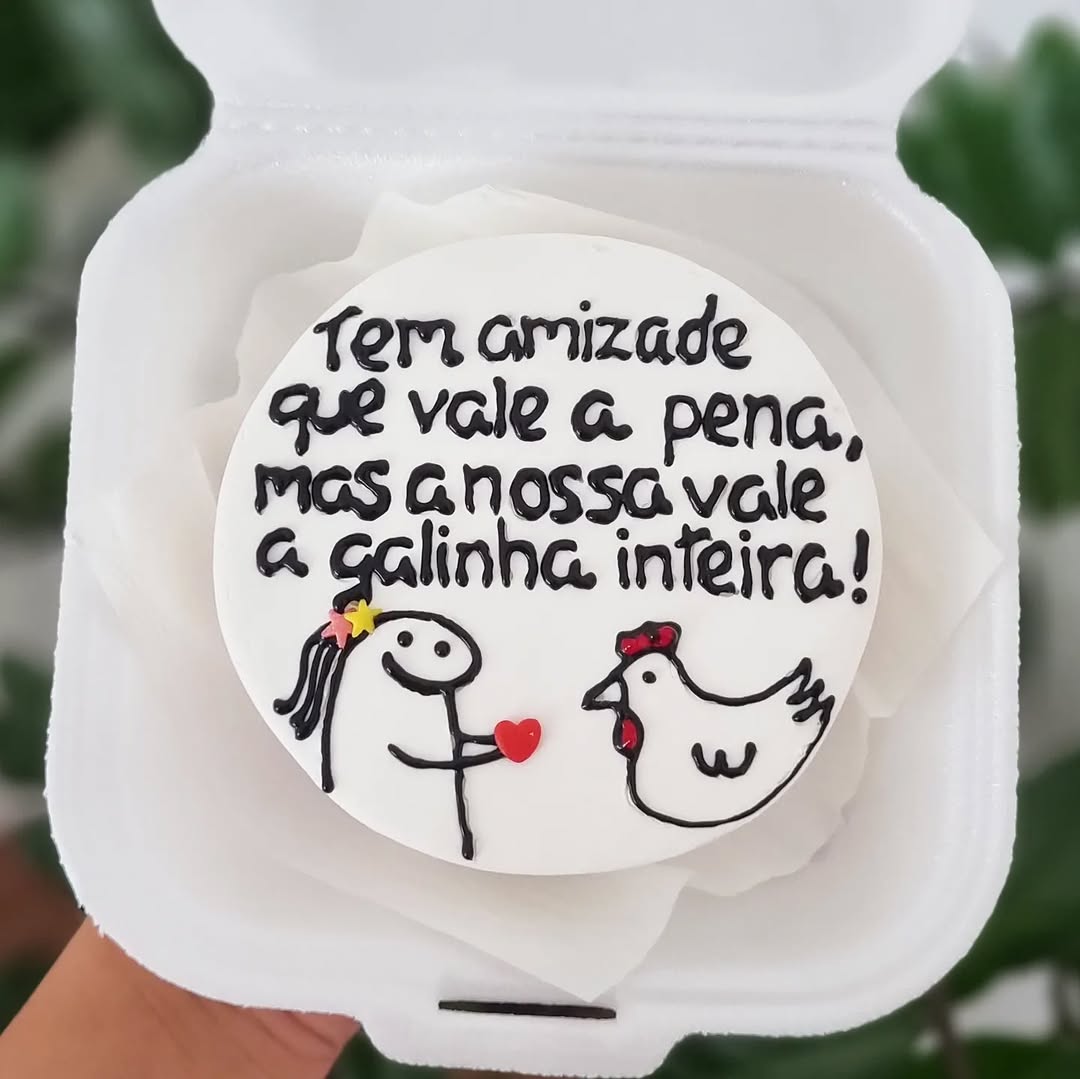 Tem amizade
que vale a pena,
mas a nossa vale
a galinha inteira!